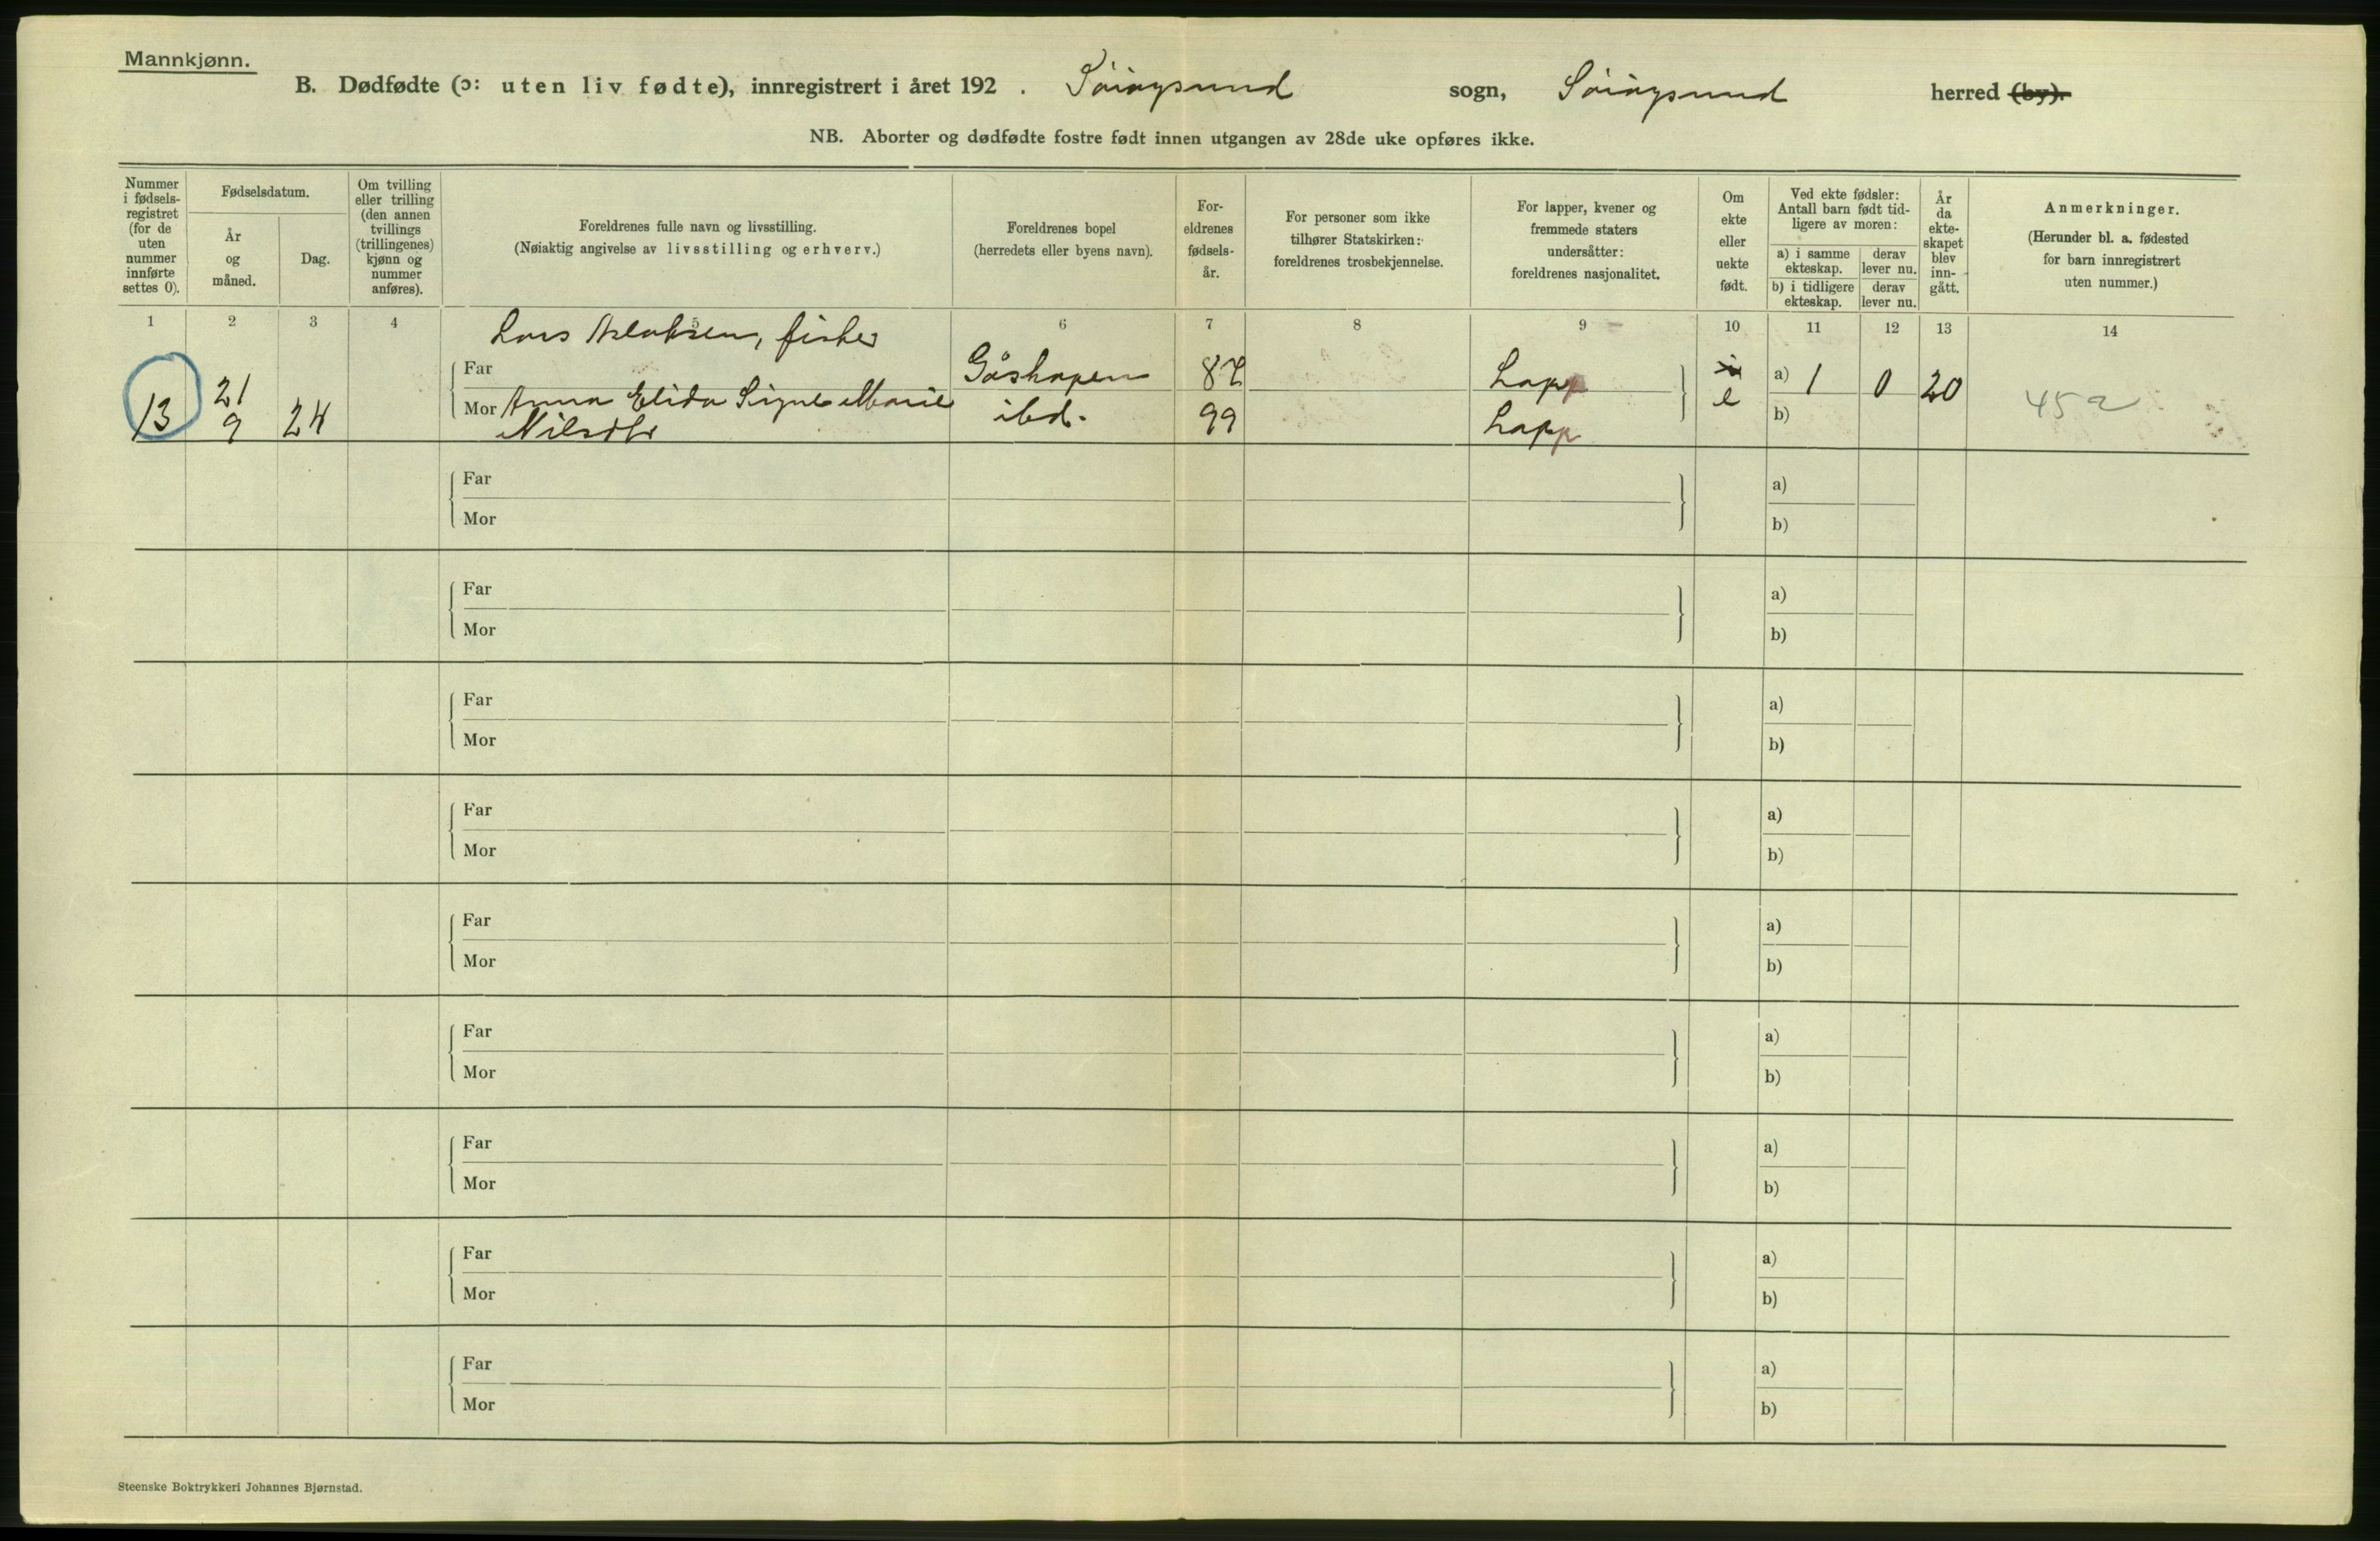 Mannkjønn.
B. Dødfødte (ɔ: uten liv fødte), innregistrert i året 192 . Sørøysund sogn, Sørøysund herred (by).
NB. Aborter og dødfødte fostre født innen utgangen av 28de uke opføres ikke.
Nummer
i fødsels-
registret
(for de
uten
nummer
innførte
settes 0).
Fødselsdatum.
År
og
måned.
Dag.
Om tvilling
eller trilling
(den annen
tvillings
(trillingenes)
kjønn og
nummer
anføres).
Foreldrenes fulle navn og livsstilling.
(Nøiaktig angivelse av livsstilling og erhverv.)
Foreldrenes bopel
(herredets eller byens navn).
For-
eldrenes
fødsels-
år.
For personer som ikke
tilhører Statskirken:
foreldrenes trosbekjennelse.
For lapper, kvener og
fremmede staters
undersåtter:
foreldrenes nasjonalitet.
Om
ekte
eller
uekte
født.
Ved ekte fødsler:
Antall barn født tid-
ligere av moren:
a) i samme
ekteskap.
derav
lever nu.
b) i tidligere
ekteskap.
derav
lever nu.
År
da
ekte-
skapet
blev
inn-
gått.
Anmerkninger.
(Herunder bl. a. fødested
for barn innregistrert
uten nummer.)
1 2 3 4 5 6 7 8 9 10 11 12 13 14
Lars Aslaksen, fisker
Far Gåshopen 87 Lapp a) 1 0 20
13 21 9 24 e 45a
Mor Anna Elida Signe Marie ibd. 99 Lapp b)
Nilsdtr
Far a)
Mor b)
Far a)
Mor b)
Far a)
Mor b)
Far a)
Mor b)
Far a)
Mor b)
Far a)
Mor b)
Far a)
Mor b)
Far a)
Mor b)
Far a)
Mor b)
Steenske Boktrykkeri Johannes Bjørnstad.